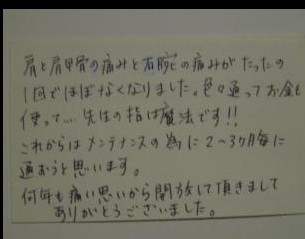 肩と肩甲骨の痛みと右腕の痛みがたったの
1回でほぼなくなりました。色々通ってお金も
使って… 先生の指は魔法です!!
これからはメンテナンスの為に2〜3ヶ月毎に
通おうと思います。
何年も痛い思いから開放して頂きまして
ありがとうございました。